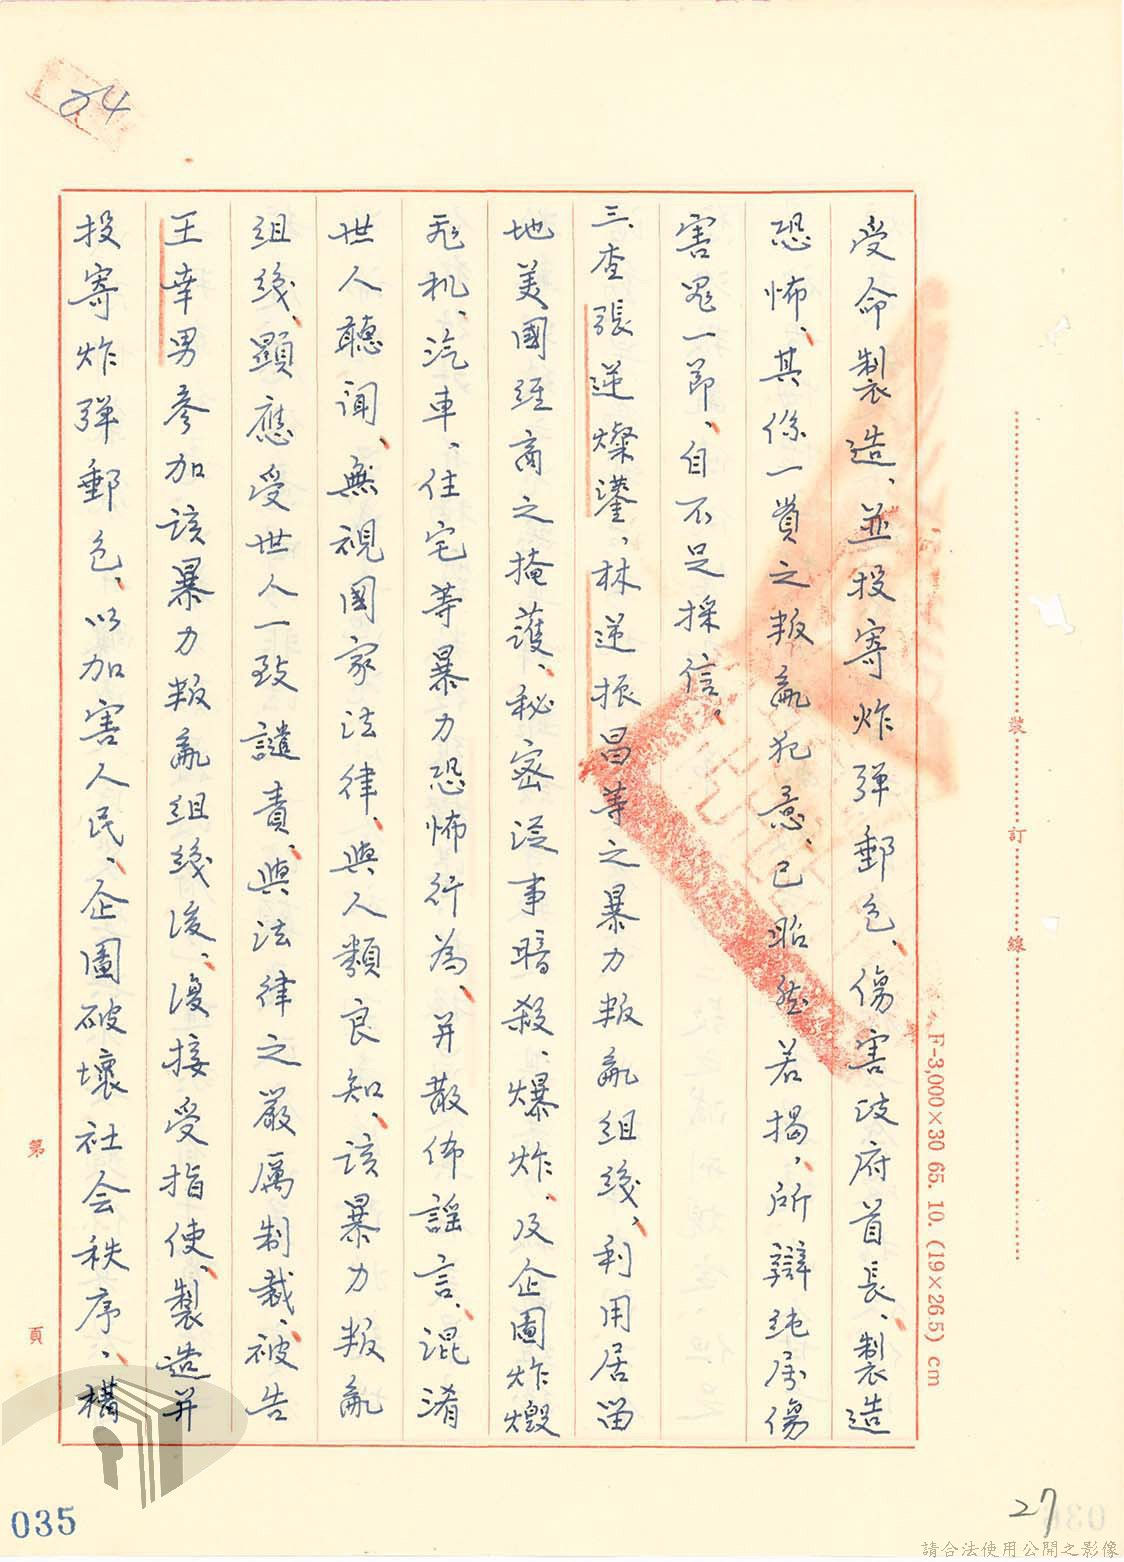 24
受命製造、並投寄炸弹郵包、傷害政府首長、製造
恐怖、其係一貫之叛亂犯意、已昭然若揭、所辯純属傷
害罪一節、自不足採信、
三、查張逆燦鍙、林逆振昌等之暴力叛亂組织、利用居留
地美國经商之掩護、秘密從事暗殺、爆炸、及企圖炸燬
飛机、汽車、住宅等暴力恐怖行為、并散佈謠言、混淆
世人聽闻、無視國家法律、與人類良知、该暴力叛亂
组织、顯應受世人一致譴責、與法律之嚴厲制裁、被告
王幸男參加该暴力叛亂组织後、復接受指使、製造并
投寄炸弹郵包、以加害人民、企圖破壞社会秩序、構
裝訂線
F-3,000×30 65. 10. (19×26.5) cm
第 頁
035
27
036
請合法使用公開之影像